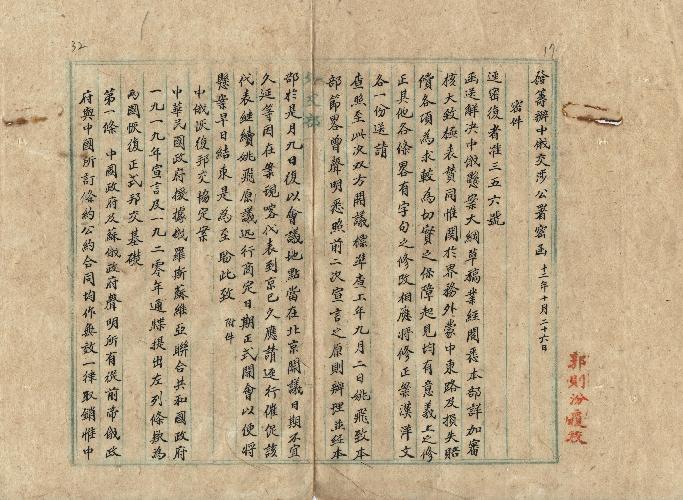 32
17
咨籌辦中俄交涉公署密函 十二年十月二十六日
密件
逕密復者准三五六號
函送解決中俄懸案大綱草稿業經閱悉本部詳加審
核大致極表贊同惟關於界務外蒙中東路及損失賠
償各項為求較為切實之保障起見均有意義上之修
正其他各條畧有字句之修改相應將修正案漢洋文
各一份送請
查照至此次双方開議標準查上年九月二日姚飛致本
部節畧曾聲明悉照前二次宣言之原則辦理並經本
部於是月九日復以會議地點當在北京開議日期不宜
久延等因在案現喀代表到京已久應請逕行催促該
代表繼續姚飛原議迅行商定日期正式開會以便將
懸案早日結束是為至盼此致 附件
中俄恢復邦交協定案
中華民國政府援據俄羅斯蘇維亞聯合共和國政府
一九一九年宣言及一九二零年通牒提出左列條欵為
兩國恢復正式邦交基礎
第一條 中國政府及蘇俄政府聲明所有從前帝俄政
府與中國所訂條約公約合同均作無效一律取銷惟中
郭則汾